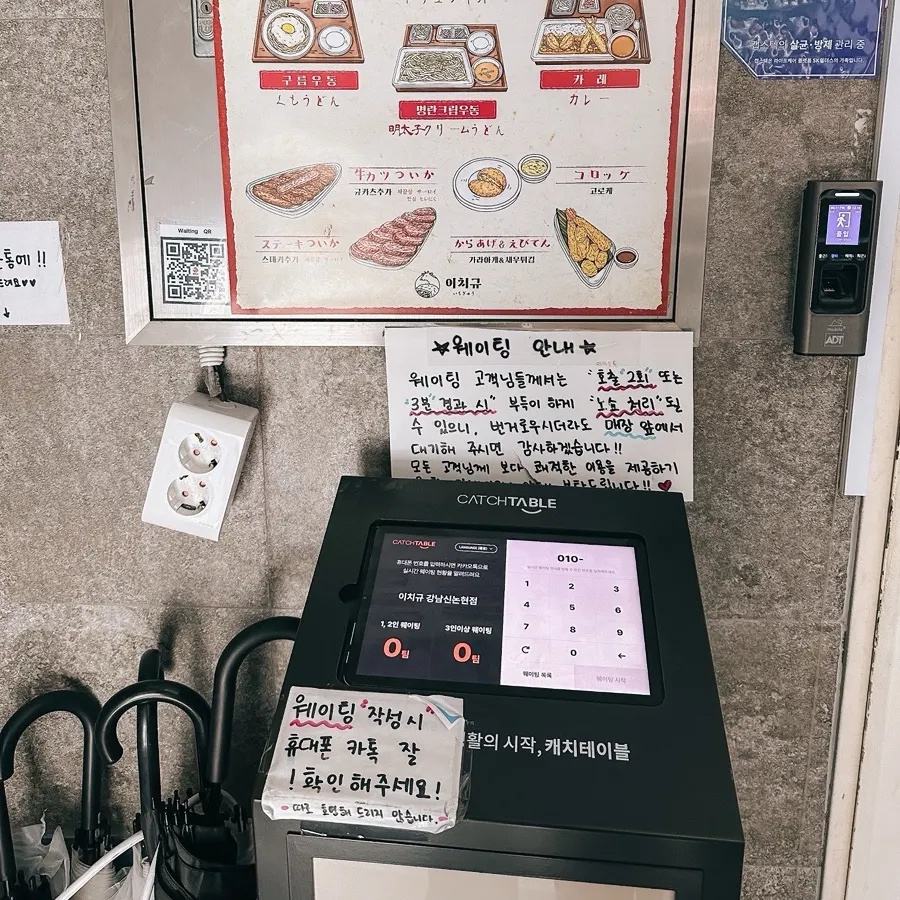 구름우동
くもうどん
명란크림우동
明太子クリームうどん
카레
カレー
캡스테의 살균·방제 관리 중
牛カツついか
규카츠추가
コロッケ
고로케
ステーキついか
스테키추가
からあげ&えびてん
가라아게&새우튀김
이치규
Waiting QR
ADT
☆웨이팅 안내☆
웨이팅 고객님들께서는 "호출 2회" 또는
"3분 경과 시" 부득이 하게 "노쇼 처리" 될
수 있으니, 번거로우시더라도 매장 앞에서
대기해 주시면 감사하겠습니다!!
모든 고객님께 보다 쾌적한 이용을 제공하기
부탁드립니다!!
CATCHTABLE
CATCHTABLE
휴대폰 번호를 입력하시면 카카오톡으로
실시간 웨이팅 현황을 알려드려요
이치규 강남신논현점
1, 2인 웨이팅
0팀
3인이상 웨이팅
0팀
010-
1 2 3
4 5 6
7 8 9
0 ←
웨이팅 목록
웨이팅 시작
활의 시작, 캐치테이블
웨이팅 "작성시"
휴대폰 카톡 잘
!확인해주세요!
따로 호명해 드리지 않습니다.